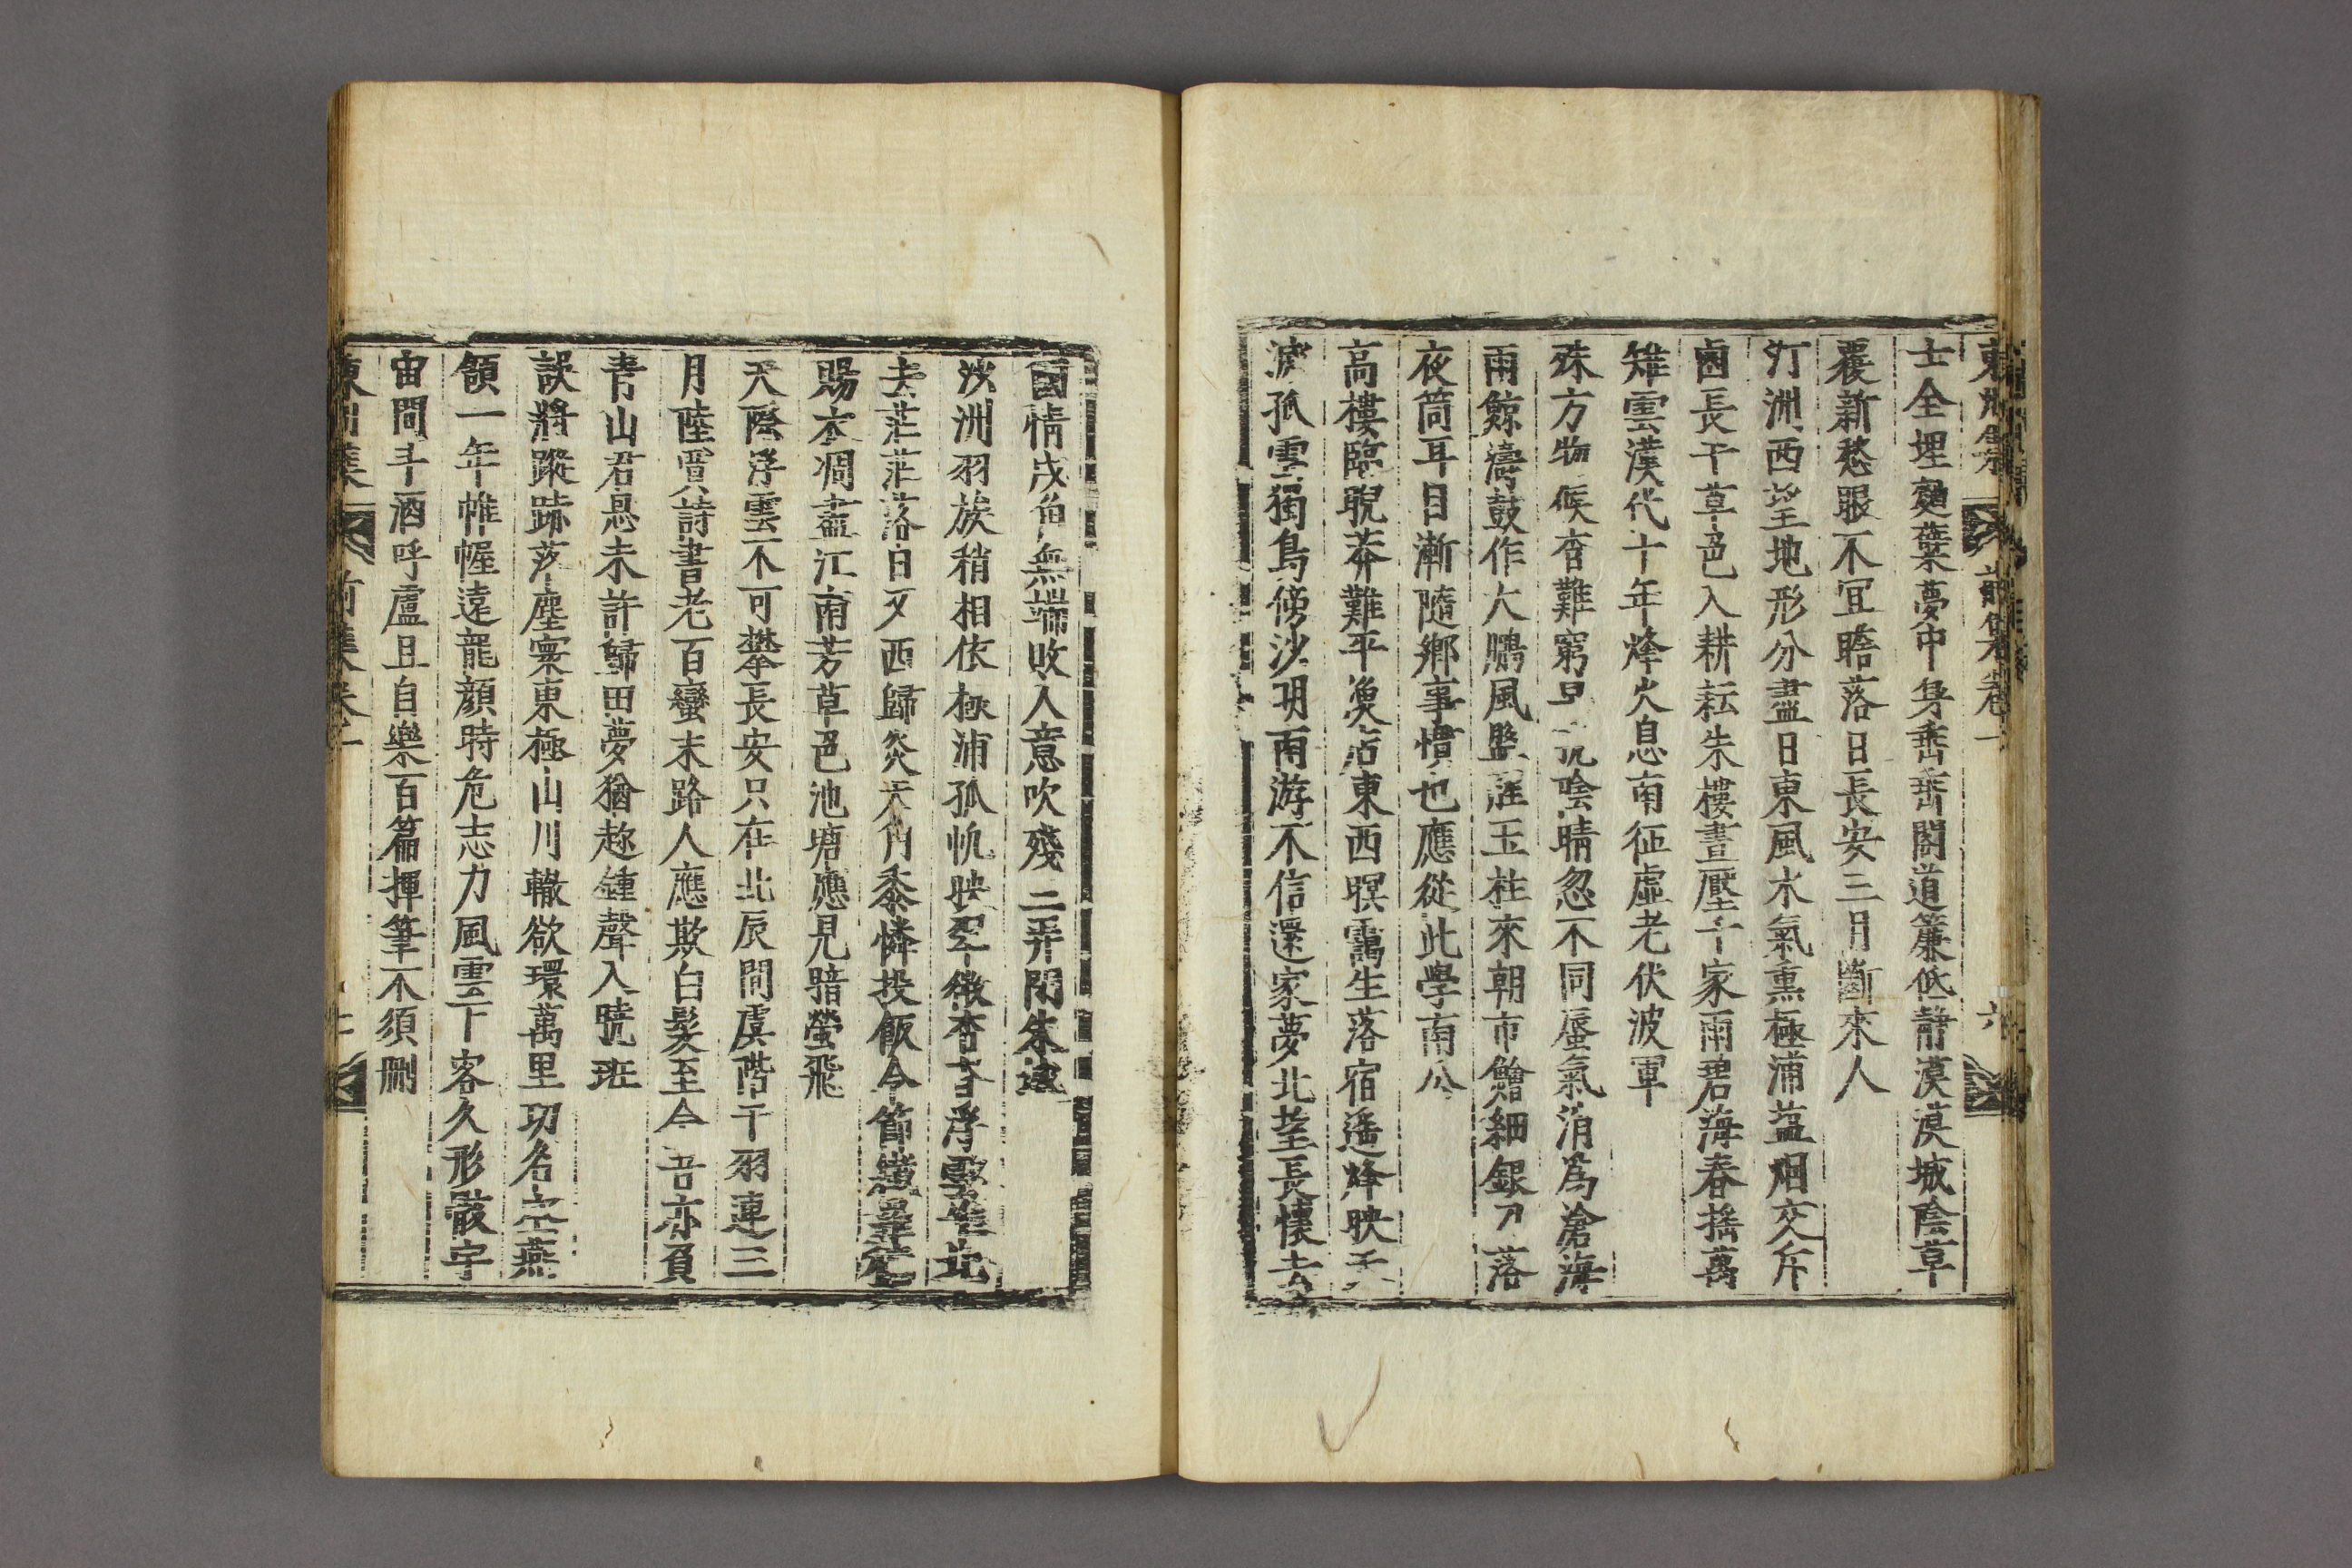 東州集 前集卷一 六
士全埋麴蘖夢中身畵閣道簾低靜漠漠城陰草
覆新愁眼不宜瞻落日長安三月斷來人
汀洲西望地形分盡日東風水氣熏極浦蓝烟交斥
鹵長干草色入耕耘朱樓晝壓千家雨碧海春搖萬
雉雲漢代十年烽火息南征虛老伏波軍
殊方物候杳難窮陰晴忽不同蜃氣消爲滄海
雨鯨濤鼓作大鵬風玉柱來朝市鱠細銀刀落
夜筒耳目漸隨鄉事慣也應從此學南公
高樓臨睨莽難平漁店東西暝靄生落宿遙烽映天
濊孤雲獨鳥傍沙明南游不信還家夢北望長懷去
國情戍角無端敗人意吹殘三弄閉朱城
沙洲羽族稍相依極浦孤帆映翠微杳杳浮雲生北
去茫茫落日又西歸炎天角黍憐投飯令節
賜衣凋盡江南芳草色池塘應見暗螢飛
天際浮雲不可攀長安只在北辰間虞階干羽連三
月陸賈詩書老百蠻末路人應欺白髮至今吾亦負
青山君恩未許歸田夢猶趂鍾聲入曉班
謾將蹤跡落塵寰東極山川轍欲環萬里功名空燕
頷一年帷幄遠龍顔時危志力風雲下客久形骸宇
宙間斗酒呼盧且自樂百篇揮筆不須刪
東州集 前集卷一